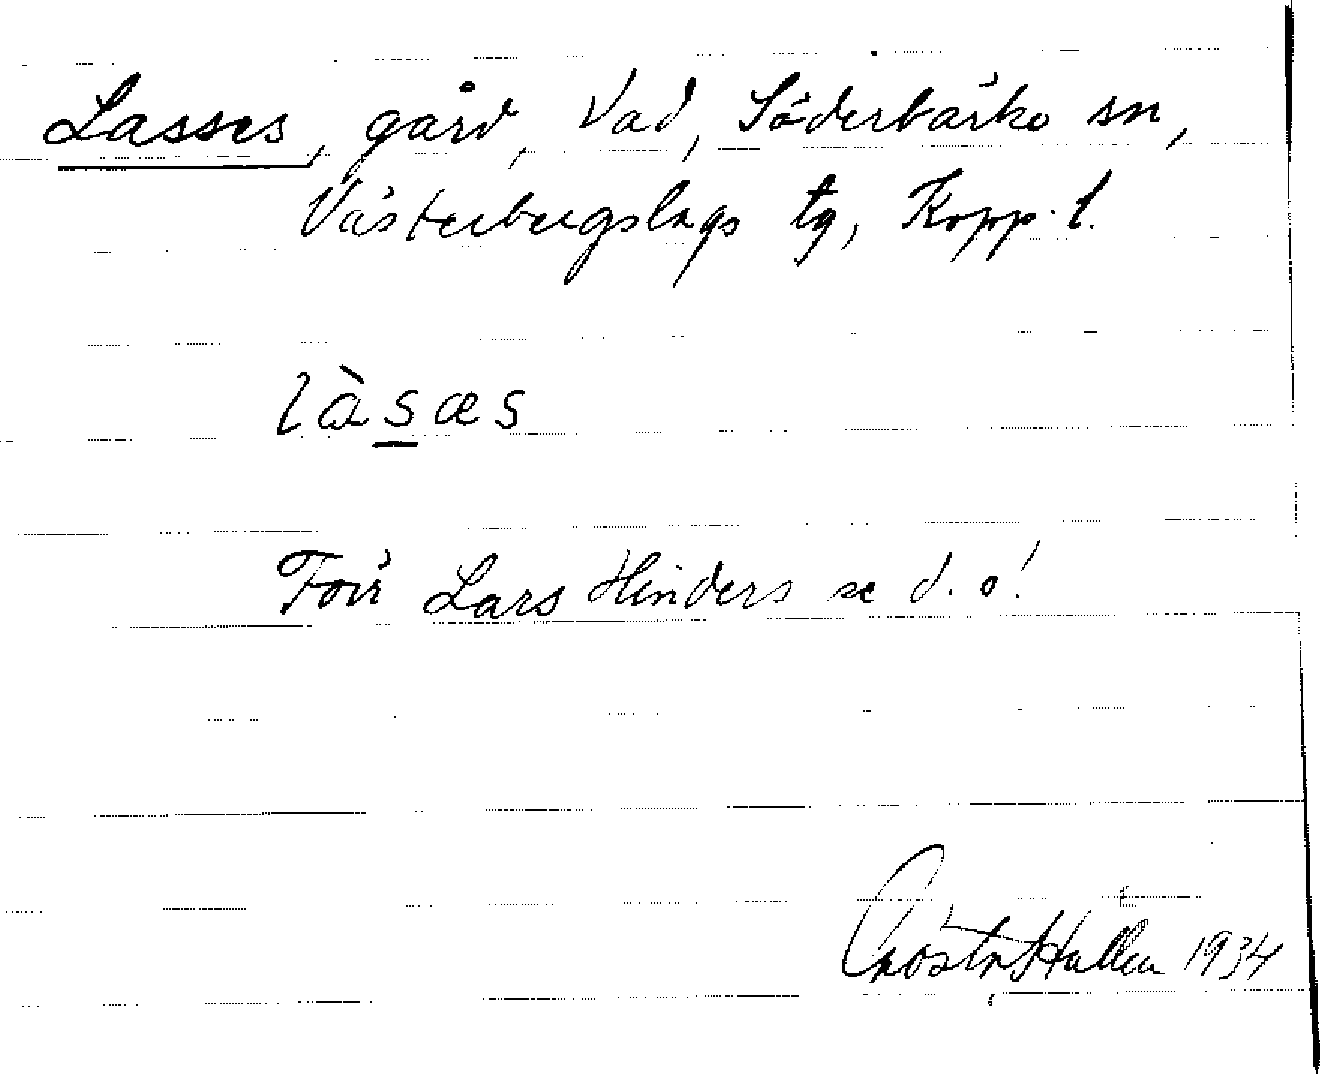 Lasses, gård, Vad, Söderbärke sn,
Västerbergslags tg, Kopp. l.
làsæs
För Lars Hinders se d. o!
Gösta Hallén 1934